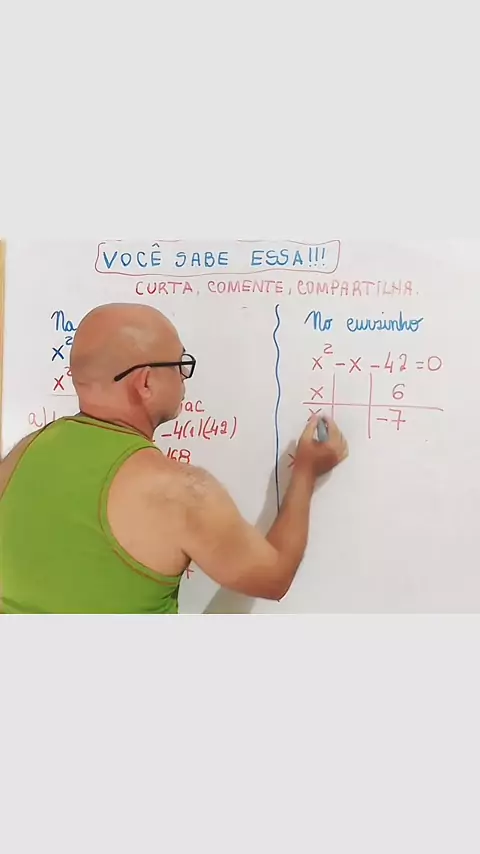 VOCÊ SABE ESSA!!!
CURTA, COMENTE, COMPARTILHA.
Na
x²
x²
a)
ac
-4(1)(-42)
168
No cursinho
x² - x - 42 = 0
x 6
x -7